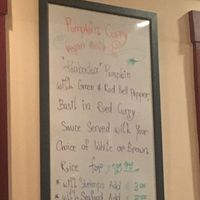 Pumpkin Curry
Vegan
"Kabocha" Pumpkin
with Green & Red Bell Pepper,
Basil in Red Curry
Sauce Served with Your
Choice of White or Brown
Rice for
* with Shrimps Add $
* with Seafood Add $